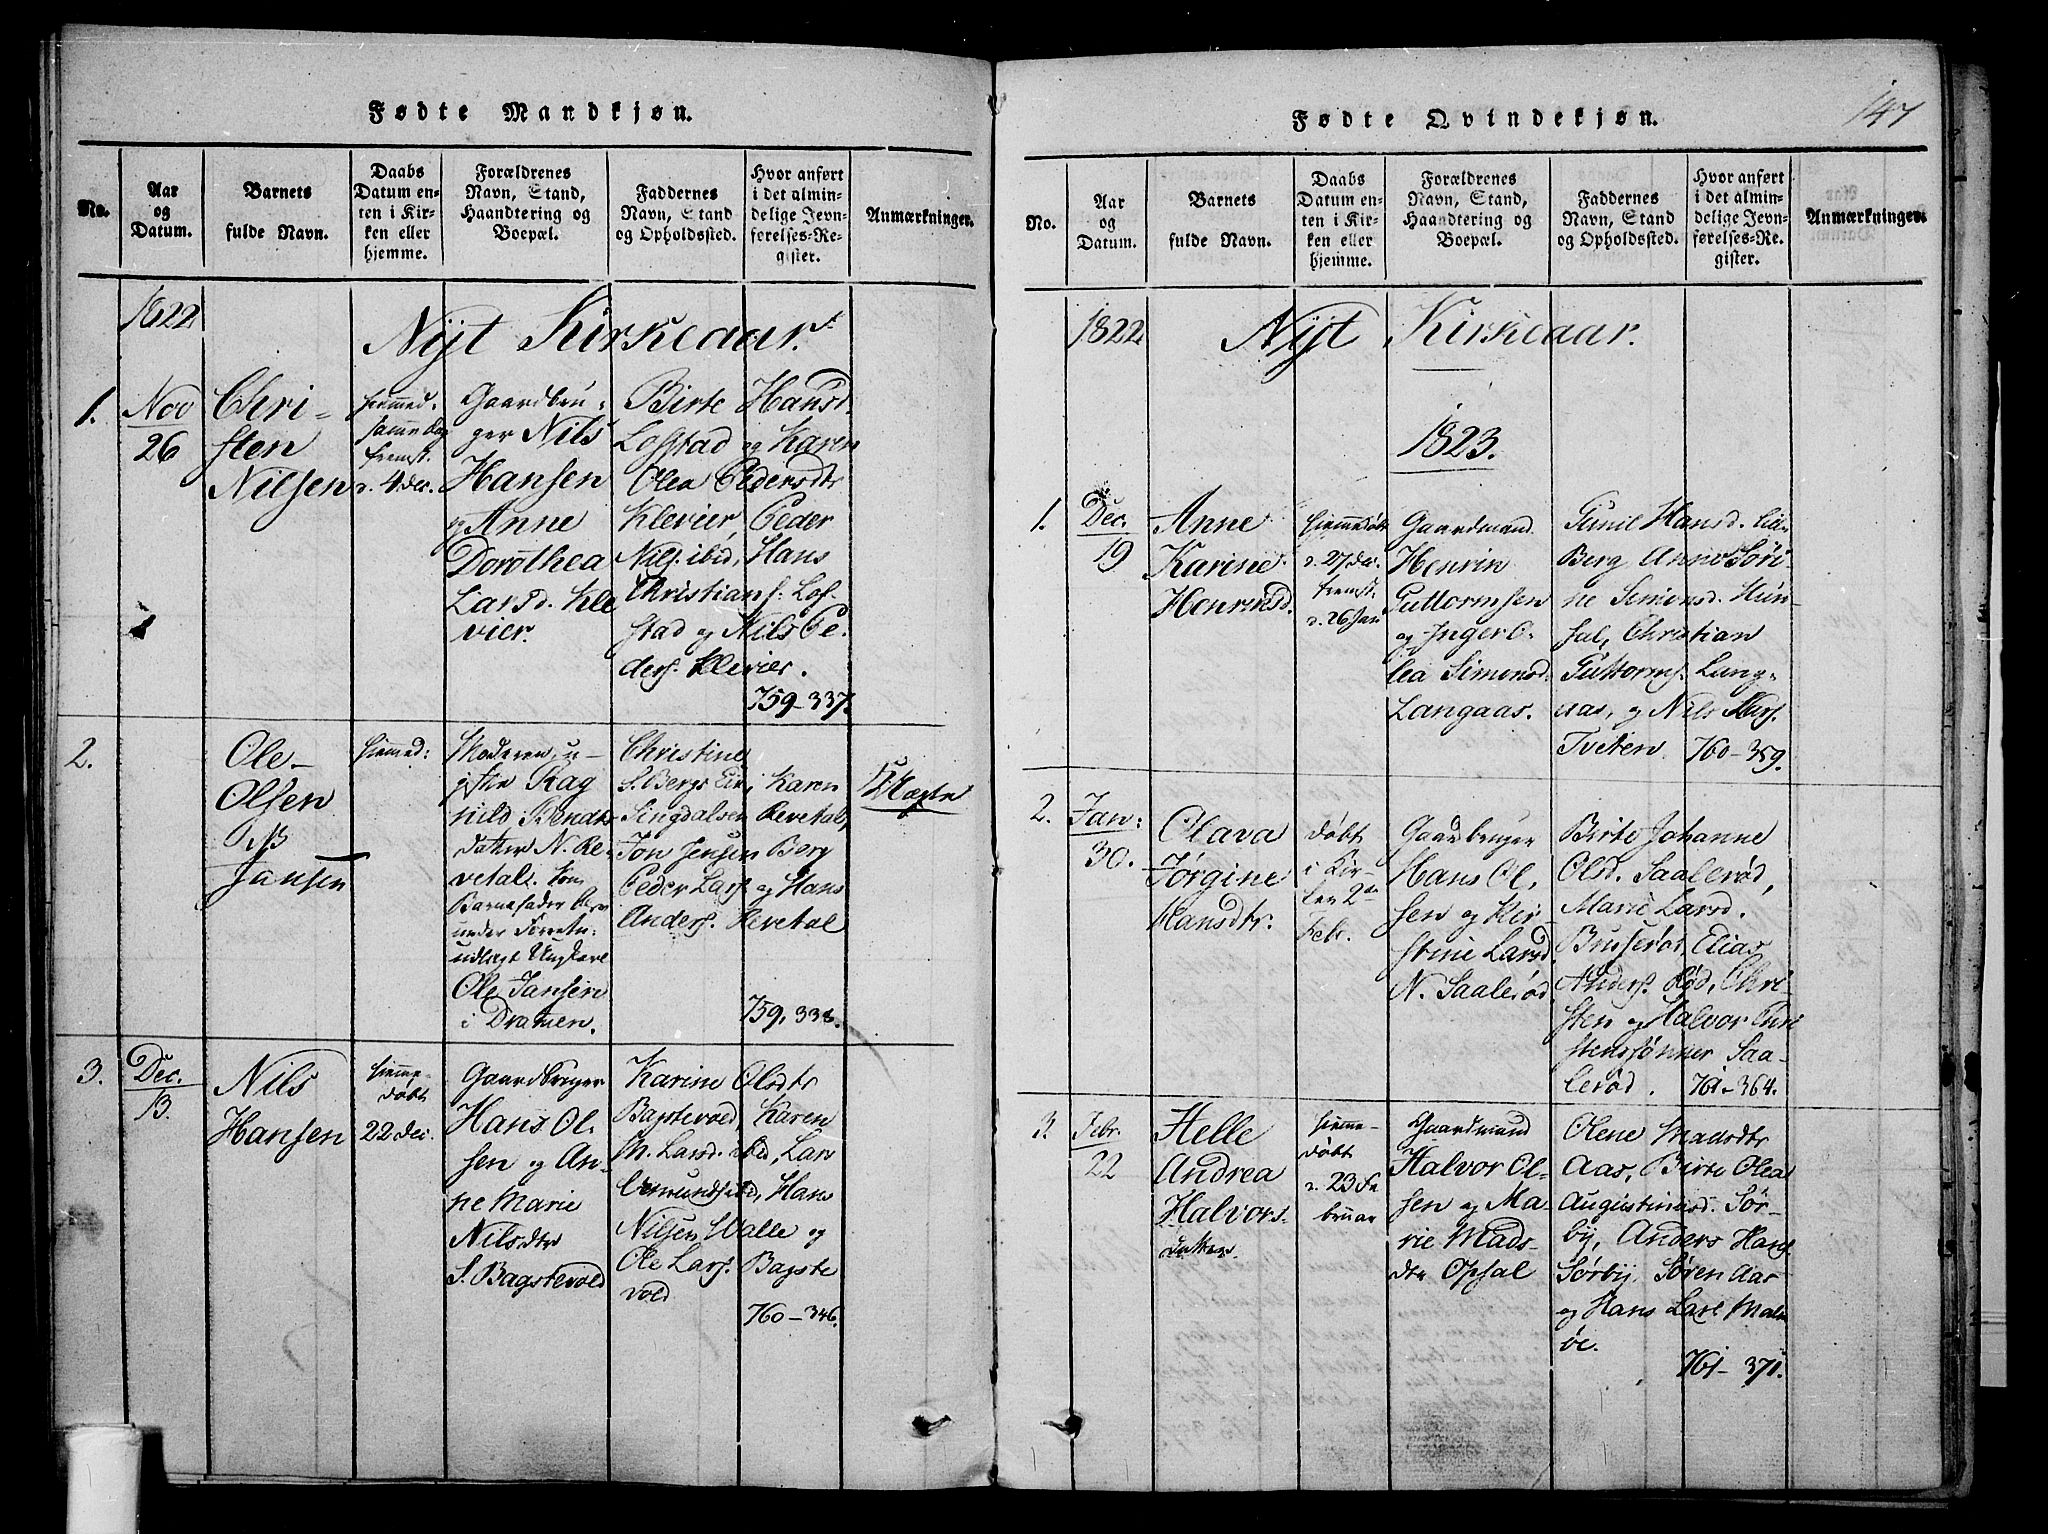 Fødte Mandkjøn.
No.
Aar
og
Datum.
Barnets
fulde Navn.
Daabs
Datum en-
ten i Kir-
ken eller
hjemme.
Forældrenes
Navn, Stand,
Haandtering og
Boepæl.
Faddernes
Navn, Stand
og Opholdssted.
Hvor anført
i det almin-
delige Jevn-
førelses-Re-
gister.
Anmærkninger.
1822
Nÿt Kirkeaar.
1.
Nov
26
Chri-
sten
Nilsen
hiemmed.
samme dag
fremst.
d. 4 dec.
Gaardbru-
ger Nils
Hansen
og Anne
Dorothea
Larsd. Kle
vier.
Birte Hansd.
Lofstad og Karen
Olea Pedersdtr
Klevier, Peder
Nils. ibid, Hans
Christians. Lof-
stad og Nils Pe-
ders. Klevier.
759-337.
2.
Ole
Olsen
Jansen
hiemmed:
Moderen u-
gifte Rag
nild Bendts
datter N. Re-
vetal. Som
Barnefader blev
udlagt Ungkarl
Ole Jansen
i Dramen.
Christine
S. Berg, Karen
Singdalsen Revetal,
Jon Jensen Berg
Peder Lars. og Hans
Anders. Revetal
759, 338.
Uægte
3.
Dec.
13.
Nils
Hansen
hiemme-
døbt
22 dec.
Gaardbruger
Hans Ol-
sen og An-
ne Marie
Nilsdtr
S. Bagstevold
Karine Olsdtr
Bagstevold, Karen
M. Larsd. ibid, Lars
Amundsen ibid, Hans
Nilsen Walle og
Ole Lars. Bagste
vold
760-346.
Fødte Qvindekjøn.
147
No.
Aar
og
Datum.
Barnets
fulde Navn.
Daabs
Datum en-
ten i Kir-
ken eller
hjemme.
Forældrenes
Navn, Stand,
Haandtering og
Boepæl.
Faddernes
Navn, Stand
og Opholdssted.
Hvor anført
i det almin-
delige Jevn-
førelses-Re.
gister.
Anmærkninger.
1822
Nÿt Kirkeaar.
1823.
1.
Dec.
19
Anne
Karine
Henrinsd.
hiemmedøbt
d. 27 dec.
fremst.
d. 26 Jan
Gaardmand
Henrin
Guttormsen
og Inger O-
lea Simonsd.
Langaas.
Gunil Hansd. Lille
Berg Anne Søri
ne Simonsd. Hun-
sal, Christian
Guttorms. Lang-
aas, og Nils
Tveten. 760-359.
2.
Jan:
30.
Olava
Jørgine
Hansdtr.
døbt
i Kir-
ken 2den
Febr.
Gaardbruger
Hans Ol-
sen og Kir-
stine Larsd.
N. Saalerød
Birte Johanne
Olsd. Saalerød,
Marie Larsd.
Busserød, Elias
Anders. Rød, Chri-
sten og Halvor Chri
stensønner Saa-
lerød. 761-364.
3.
Febr.
22
Helle
Andrea
Halvors-
datter.
hiemme-
døbt
d. 23 Fe
bruar
Gaardmand
Halvor Ol-
sen og Ma-
rie Mads-
dtr Opsal
Olene Madsdtr
Aas, Birte Olea
Augustinusd. Sør-
by, Anders Hans.
Sørby, Søren Aas
og Hans Lars Malm
øe.
761-371.